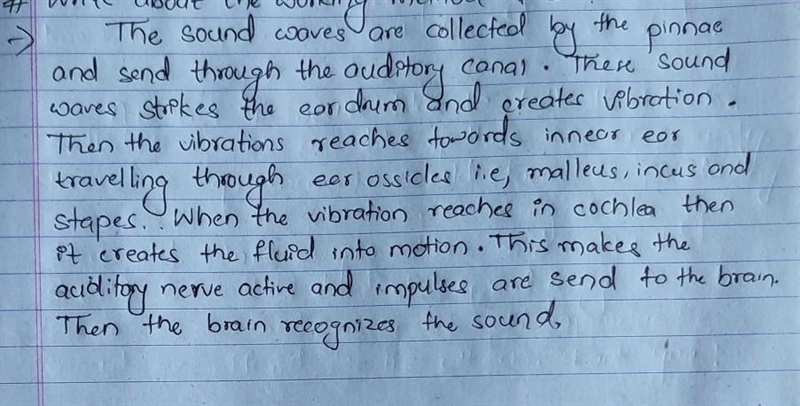 # Write about the working method
→ The sound waves are collected by the pinnae
and send through the auditory canal. These sound
waves strikes the eardrum and creates vibration.
Then the vibrations reaches towords innear ear
travelling through ear ossicles i.e, malleus, incus and
stapes. When the vibration reaches in cochlea then
it creates the fluid into motion. This makes the
auditory nerve active and impulses are send to the brain.
Then the brain recognizes the sound.